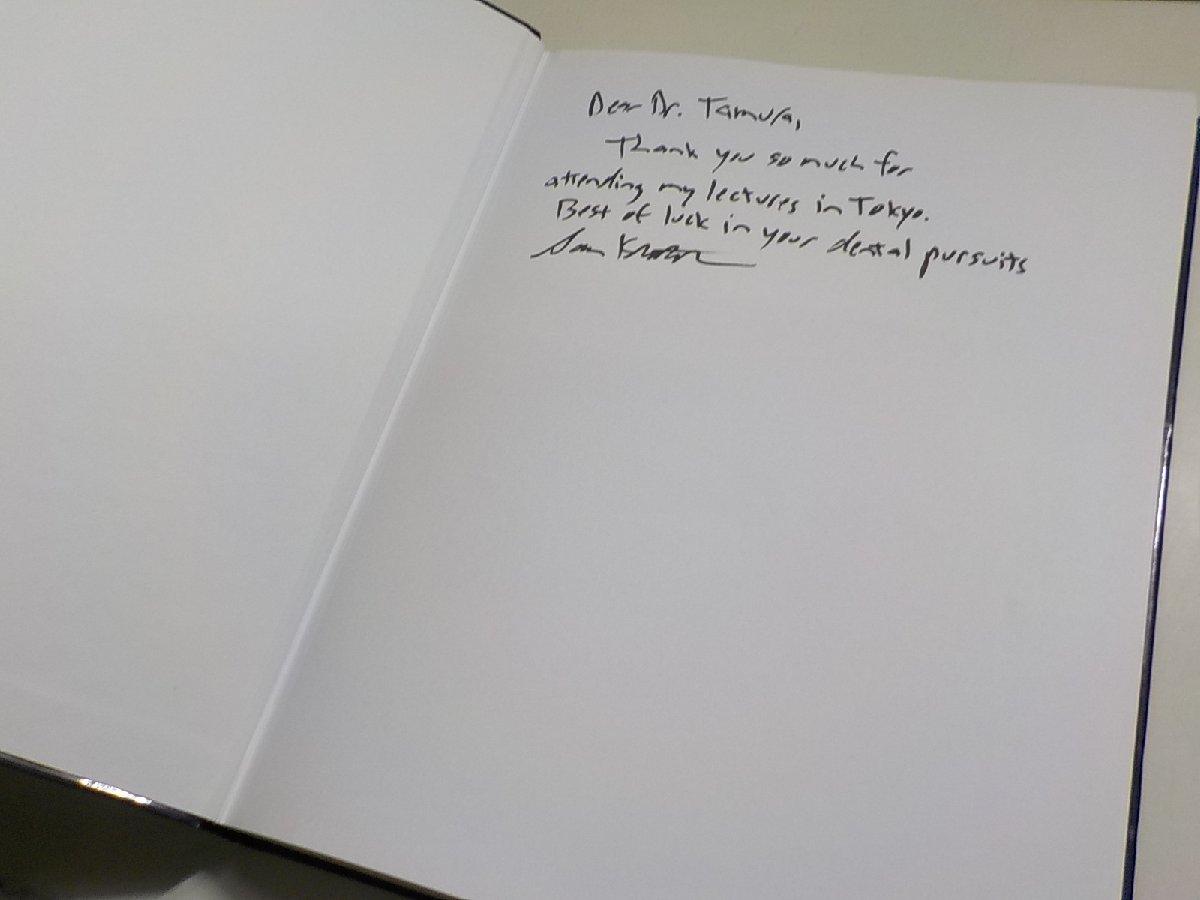 Dear Dr. Tamura,
Thank you so much for
attending my lectures in Tokyo.
Best of luck in your dental pursuits